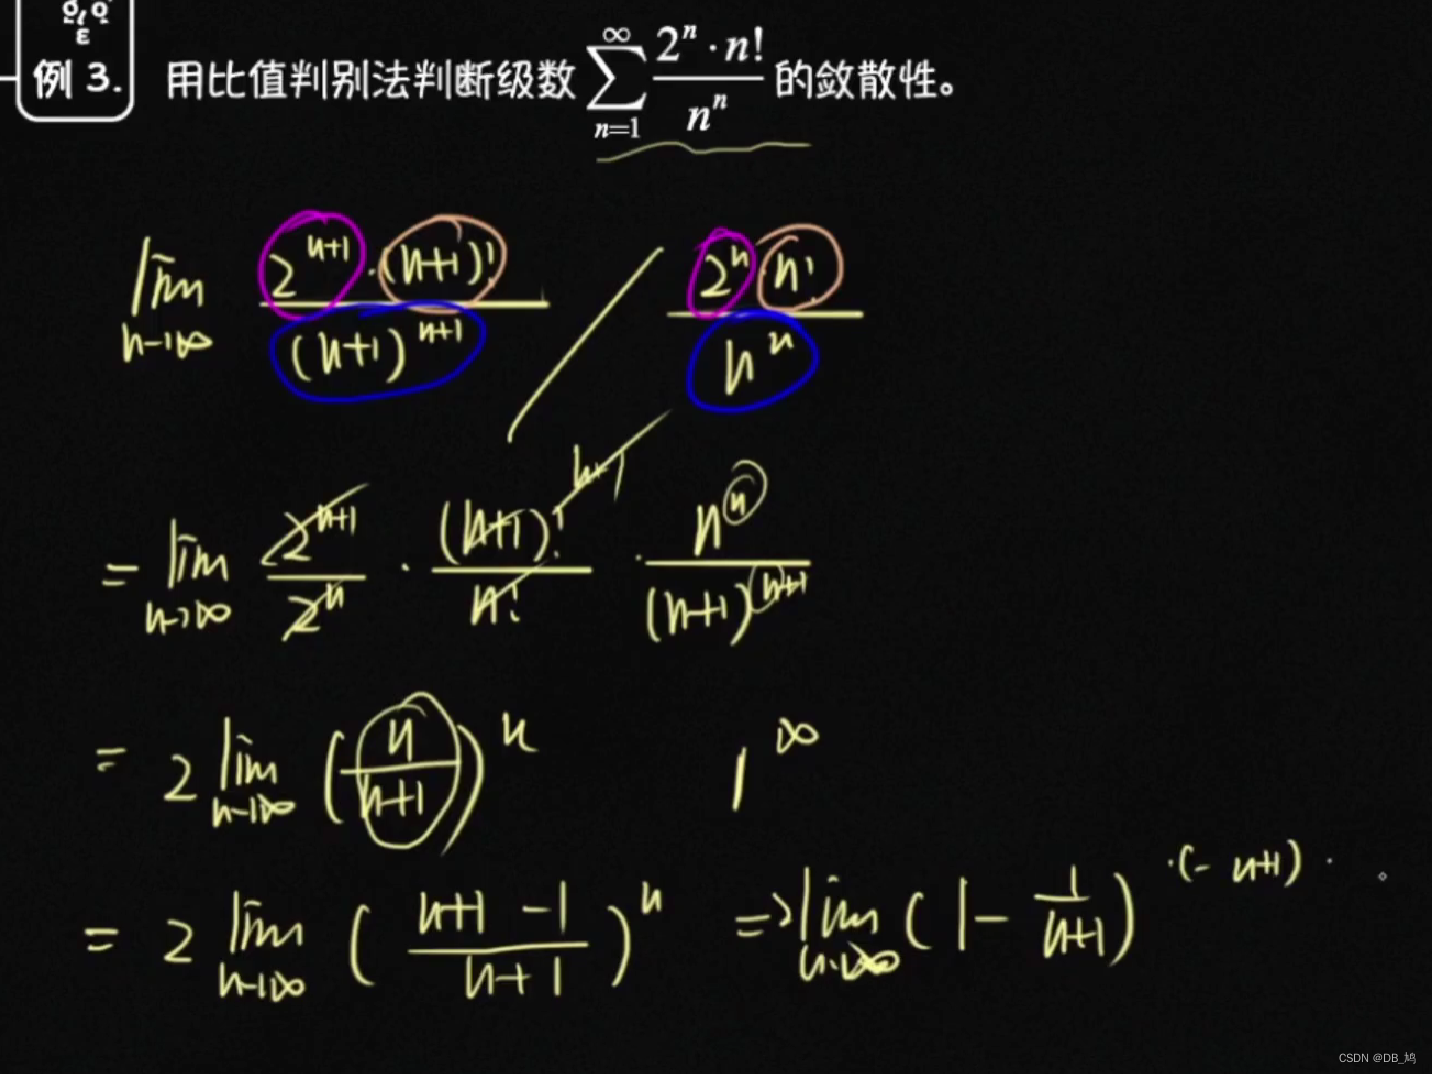 例 3. 用比值判别法判断级数 ∑_{n=1}^{∞} \frac{2^n · n!}{n^n} 的敛散性。
lim_{n→∞} \frac{2^{n+1} · (n+1)!}{(n+1)^{n+1}} / \frac{2^n n!}{n^n}
= lim_{n→∞} \frac{2^{n+1}}{2^n} · \frac{(n+1)!}{n!} · \frac{n^n}{(n+1)^{n+1}}
n+1
= 2 lim_{n→∞} (\frac{n}{n+1})^n 1^∞
= 2 lim_{n→∞} (\frac{n+1 -1}{n+1})^n => lim_{n→∞} (1 - \frac{1}{n+1})^{·(- n+1) ·}
CSDN @DB_鸠